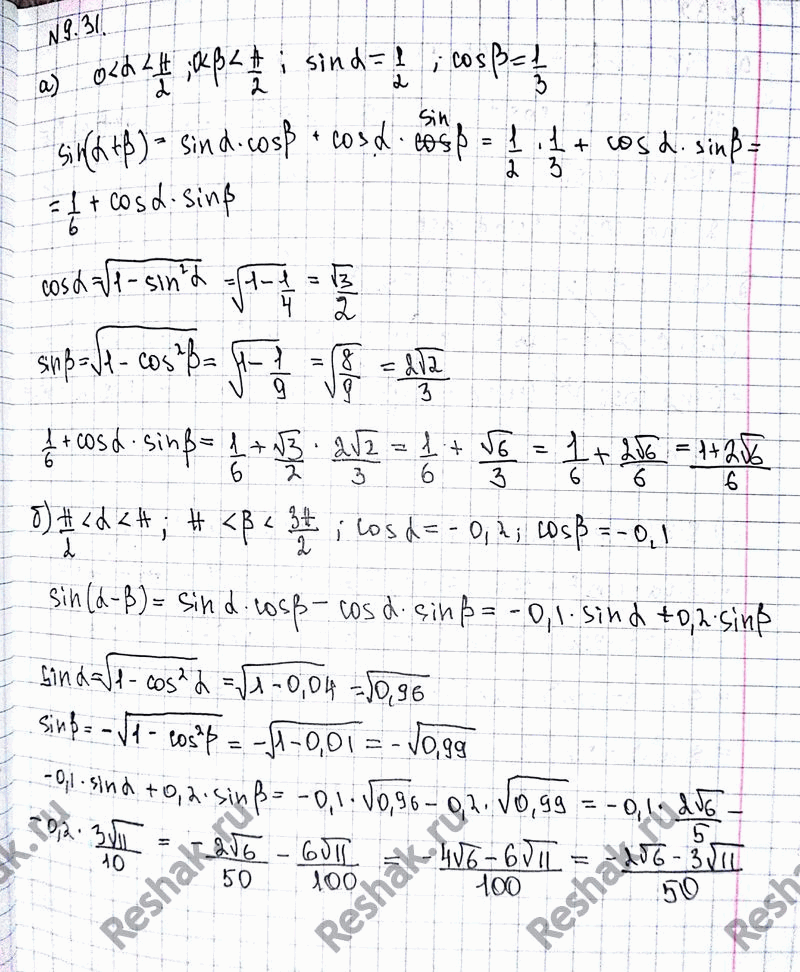 N 9.31.
а) 0<α<π/2 ; 0<β<π/2 ; sinα=1/2 ; cosβ=1/3
sin(α+β) = sinα·cosβ + cosα·sinβ = 1/2 · 1/3 + cosα·sinβ =
= 1/6 + cosα·sinβ
cosα=√(1-sin²α) = √(1-1/4) = √3/2
sinβ=√(1-cos²β) = √(1-1/9) = √(8/9) = 2√2/3
1/6 + cosα·sinβ = 1/6 + √3/2 · 2√2/3 = 1/6 + √6/3 = 1/6 + 2√6/6 = (1+2√6)/6
б) π/2<α<π ; π<β<3π/2 ; cosα=-0,2; cosβ=-0,1
sin(α-β) = sinα·cosβ - cosα·sinβ = -0,1·sinα+0,2·sinβ
sinα=√(1-cos²α) = √(1-0,04) = √0,96
sinβ = -√(1-cos²β) = -√(1-0,01) = -√0,99
-0,1·sinα+0,2·sinβ = -0,1·√0,96 - 0,2·√0,99 = -0,1·2√6/5 -
-0,2·3√11/10 = -2√6/50 - 6√11/100 = (-4√6-6√11)/100 = (-2√6-3√11)/50
Reshak.ru
Reshak.ru
Reshak.ru
Reshak.ru
Reshak.ru